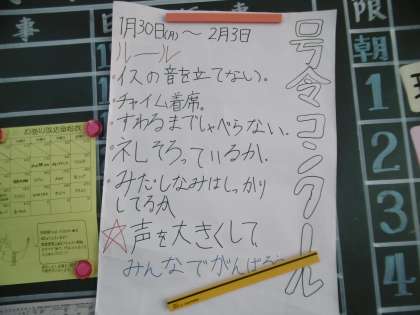 号令コンクール
1月30日(月)〜2月3日
ルール
・イスの音を立てない。
・チャイム着席。
・すわるまでしゃべらない。
・礼しそろっているか.
・みだしなみはしっかり
してるか
☆声を大きくして
みんなでがんばろう
事
事
限
朝
1
2
3
4